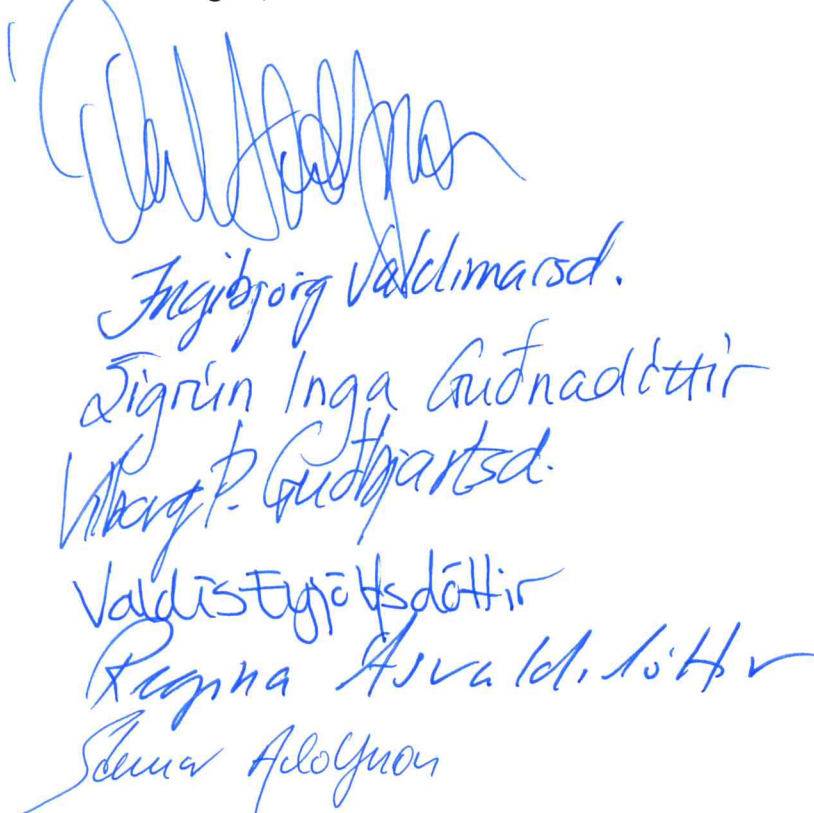 Ingibjörg Valdimarsd.
Sigrún Inga Guðnadóttir
Vilborg Þ. Guðbjartsd.
Valdís Eyjólfsdóttir
Regína Ásvaldsdóttir